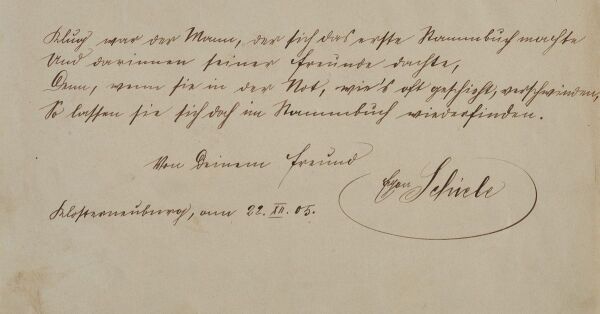 Klug war der Mann, der sich das erste Stammbuch machte
Und darinnen seiner Freunde dachte,
Denn, wenn sie in der Not, wie's oft geschieht, verschwinden,
So lassen sie sich doch im Stammbuch wiederfinden.
Von Deinem Freund
Egon Schiele
Klosterneuburg, am 22. XII. 05.